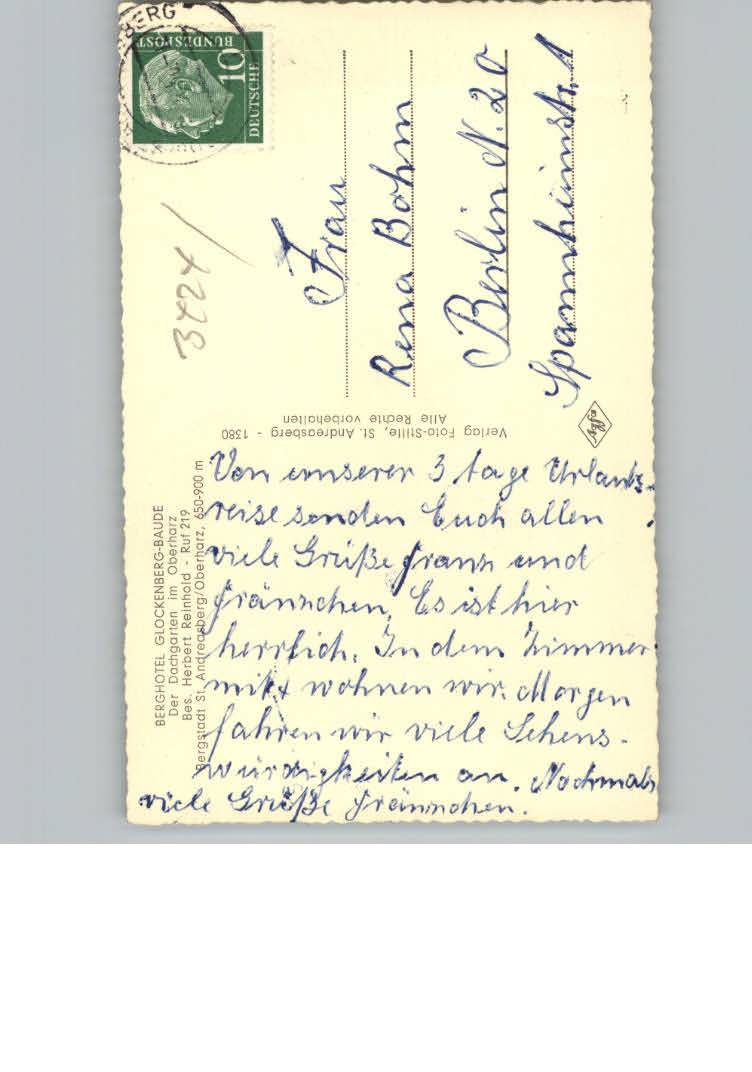 BERG
DEUTSCHE
BUNDESPOST
10
Frau
Rena Bohm
Berlin N. 20
Spannheimstr. 1
BERGHOTEL GLOCKENBERG-BAUDE
Der Dachgarten im Oberharz
Bes. Herbert Reinhold - Ruf 219
Bergstadt St. Andreasberg/Oberharz, 650-900 m
Verlag Foto-Stille, St. Andreasberg - 1380
Alle Rechte vorbehalten
Agfa
Von unserer 3 tage Urlaubs-
reise senden Euch allen
viele Grüße Franz und
Fränzchen. Es ist hier
herrlich. In dem Zimmer
mit x wohnen wir. Morgen
fahren wir viele Sehens-
würdigkeiten an. Nochmals
viele Grüße Fränzchen.